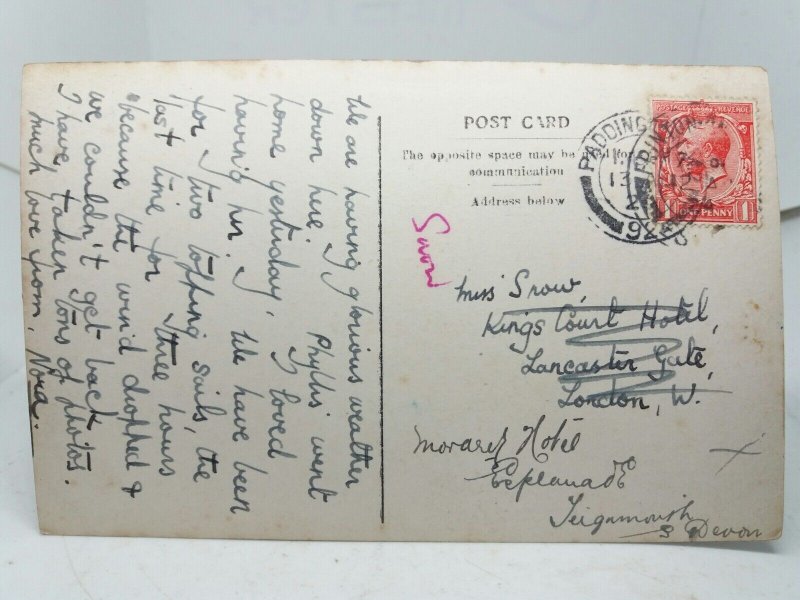 We are having glorious weather
down here. Phyllis went
home yesterday, I loved
having her. We have been
for two topping sails, the
last time for three hours
because the wind dropped &
we couldn't get back
I have taken tons of photos.
much love from, Nora.
POST CARD
The opposite space may be used for
communication
Address below
PADDINGTON
POSTAGE REVENUE
1 ONE PENNY 1
Snow
Miss Snow,
Kings Court Hotel,
Lancaster Gate,
London, W.
Hotel
Esplanade
Teignmouth
S Devon